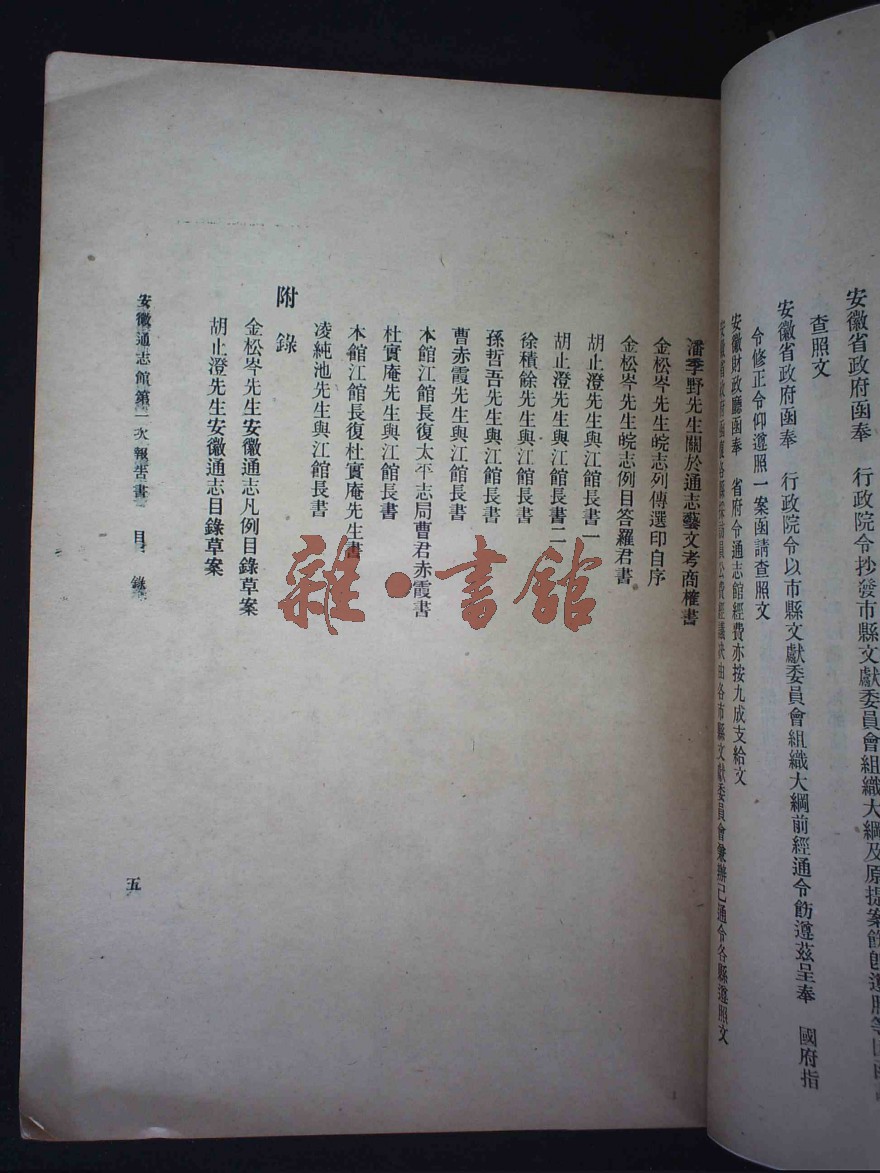 安徽省政府函奉　行政院令抄發市縣文獻委員會組織大綱及原提案飭
查照文
安徽省政府函奉　行政院令以市縣文獻委員會組織大綱前經通令飭遵茲呈奉　國府指
令修正令仰遵照一案函請查照文
安徽財政廳函奉　省府令通志館經費亦按九成支給文
安徽省政府函復各縣採訪員公費經議決由各市縣文獻委員會兼辦已通令各縣遵照文
潘季野先生關於通志藝文考商榷書
金松岑先生皖志列傳選印自序
金松岑先生皖志例目答羅君書
胡止澄先生與江館長書一
胡止澄先生與江館長書二
徐積餘先生與江館長書
孫哲吾先生與江館長書
曹赤霞先生與江館長書
本館江館長復太平志局曹君赤霞書
杜實庵先生與江館長書
本館江館長復杜實庵先生書
凌純池先生與江館長書
附錄
金松岑先生安徽通志凡例目錄草案
胡止澄先生安徽通志目錄草案
安徽通志館第二次報告書　目　錄
五
雜·書館